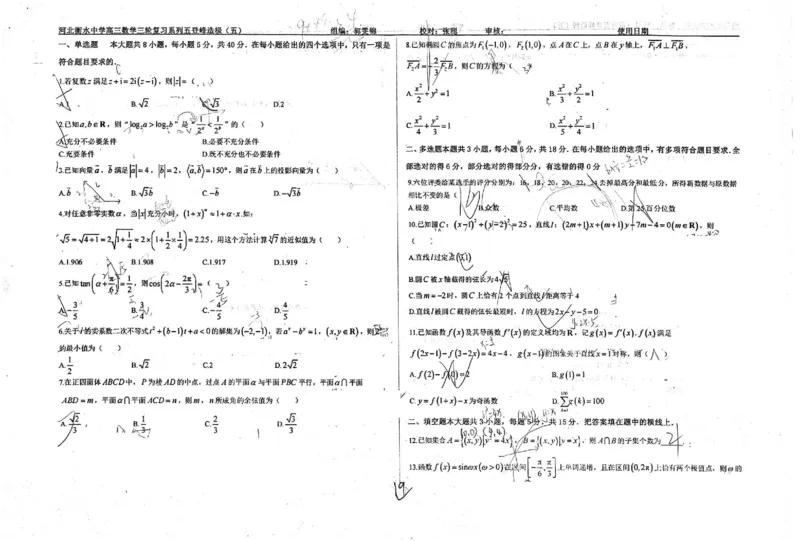 河北衡水中学高三数学三轮复习系列五登峰造极（五） 组编：郭雯锦 校对：张彪 审核： 使用日期
一、单选题 本大题共8小题，每小题5分，共40分．在每小题给出的四个选项中，只有一项是
符合题目要求的．
1.若复数z满足z+i=2i(z−i)，则|z|=（ ）
A.1 B.√2 C.√3 D.2
2.已知a,b∈R，则“log₂a>log₂b”是“1/2ᵃ<1/2ᵇ”的（ ）
A.充分不必要条件 B.必要不充分条件
C.充要条件 D.既不充分也不必要条件
3.已知向量a，b满足|a|=4，|b|=2，⟨a,b⟩=150°，则a在b上的投影向量为（ ）
A.b B.√3b C.−b D.−√3b
4.对任意非零实数α，当|x|充分小时，(1+x)^α≈1+α·x.如:
√5=√(4+1)=2√(1+1/4)≈2×(1+1/2×1/4)=2.25，用这个方法计算∛7的近似值为（ ）
A.1.906 B.1.908 C.1.917 D.1.919
5.已知tan(α+π/6)=1/2，则cos(2α−2π/3)=（ ）
A.−3/5 B.3/5 C.−4/5 D.4/5
6.关于t的实系数二次不等式t²+(b−1)t+a<0的解集为(−2,−1)，若aˣ−bʸ=1，(x,y∈R)，则
的最小值为（ ）
A.1/2 B.√2 C.2 D.2√2
7.在正四面体ABCD中，P为棱AD的中点，过点A的平面α与平面PBC平行，平面α∩平面
ABD=m，平面α∩平面ACD=n，则m，n所成角的余弦值为（ ）
A.√2/3 B.1/3 C.2/3 D.√3/3
8.已知椭圆C的焦点为F₁(−1,0)，F₂(1,0)，点A在C上，点B在y轴上，F₁A⊥F₁B，
F₂A=−2/3F₂B，则C的方程为（ ）
A.x²/2+y²=1 B.x²/3+y²/2=1
C.x²/4+y²/3=1 D.x²/5+y²/4=1
二、多选题本题共3小题，每小题6分，共18分．在每小题给出的选项中，有多项符合题目要求．全
部选对的得6分，部分选对的得部分分，有选错的得0分
9.六位评委给某选手的评分分别为：16，18，20，20，22，24.去掉最高分和最低分，所得新数据与原数据
相比不变的是（
A.极差 B.众数 C.平均数 D.第25百分位数
10.已知圆C：(x−1)²+(y−2)²=25，直线l：(2m+1)x+(m+1)y−7m−4=0(m∈R)，则
（
A.直线l过定点(3,1)
B.圆C被x轴截得的弦长为4√5
C.当m=−2时，圆C上恰有2个点到直线l距离等于4
D.直线l被圆C截得的弦长最短时，l的方程为2x−y−5=0
11.已知函数f(x)及其导函数f′(x)的定义域均为R，记g(x)=f′(x)．f(x)满足
f(2x−1)−f(3−2x)=4x−4，g(x−1)的图象关于直线x=1对称，则（ ）
A.f(2)−f(0)=2 B.g(1)=1
C.y=f(1+x)−x为奇函数 D.∑g(k)=100
二、填空题本大题共3小题，每题5分，共15分．把答案填在题中的横线上．
12.已知集合A={(x,y)|y²=4x}，B={(x,y)|y=x}，则A∩B的子集个数为 4
13.函数f(x)=sinωx(ω>0)在区间[−π/6,π/3]上单调递增，且在区间(0,2π)上恰有两个极值点，则ω的